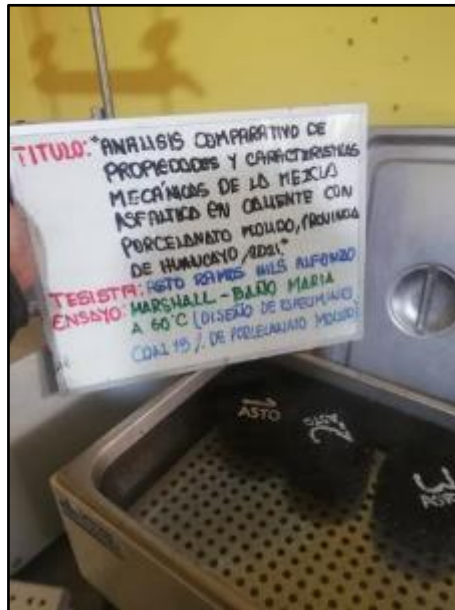 TITULO: "ANALISIS COMPARATIVO DE
PROPIEDADES Y CARACTERISTICAS
MECÁNICAS DE LA MEZCLA
ASFALTICA EN CALIENTE CON
PORCELANATO MOLIDO, PROVINCIA
DE HUANCAYO, 2021"
TESISTA: ASTO RAMOS NILS ALFONZO
ENSAYO: MARSHALL - BAÑO MARIA
A 60°C (DISEÑO DE ESPECIMENES
CON 15% DE PORCELANATO MOLIDO)
1
ASTO
2
ASTO
3